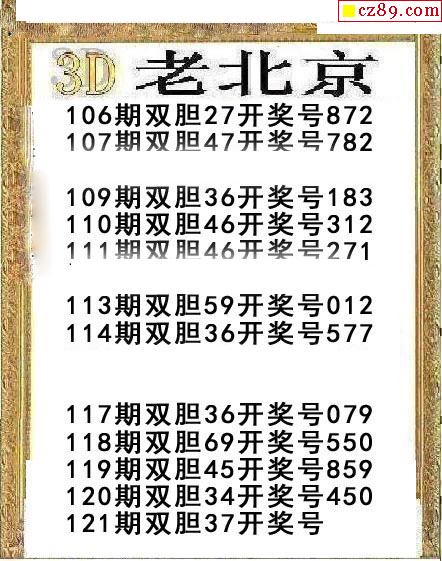 cz89.com
3D 老北京
106期双胆27开奖号872
107期双胆47开奖号782
109期双胆36开奖号183
110期双胆46开奖号312
111期双胆46开奖号271
113期双胆59开奖号012
114期双胆36开奖号577
117期双胆36开奖号079
118期双胆69开奖号550
119期双胆45开奖号859
120期双胆34开奖号450
121期双胆37开奖号